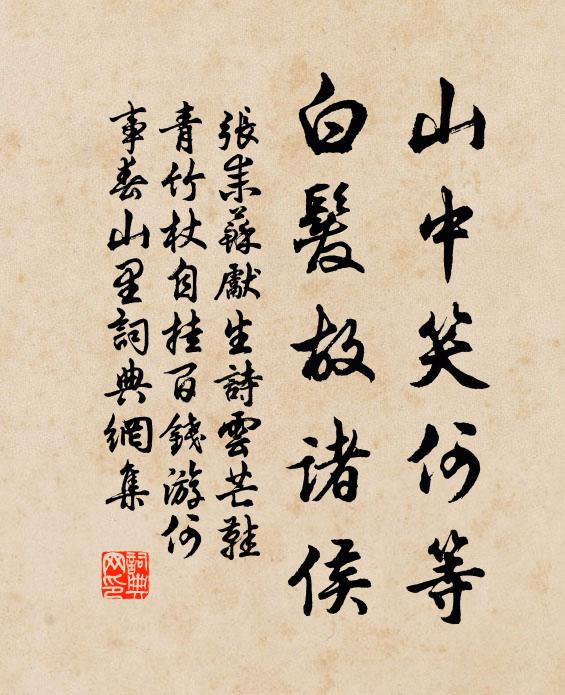 山中笑何等
白髮故諸侯
張耒蘇獻生詩雲芒鞋
青竹杖自挂百錢游何
事春山里詞典網集
詞典
网印